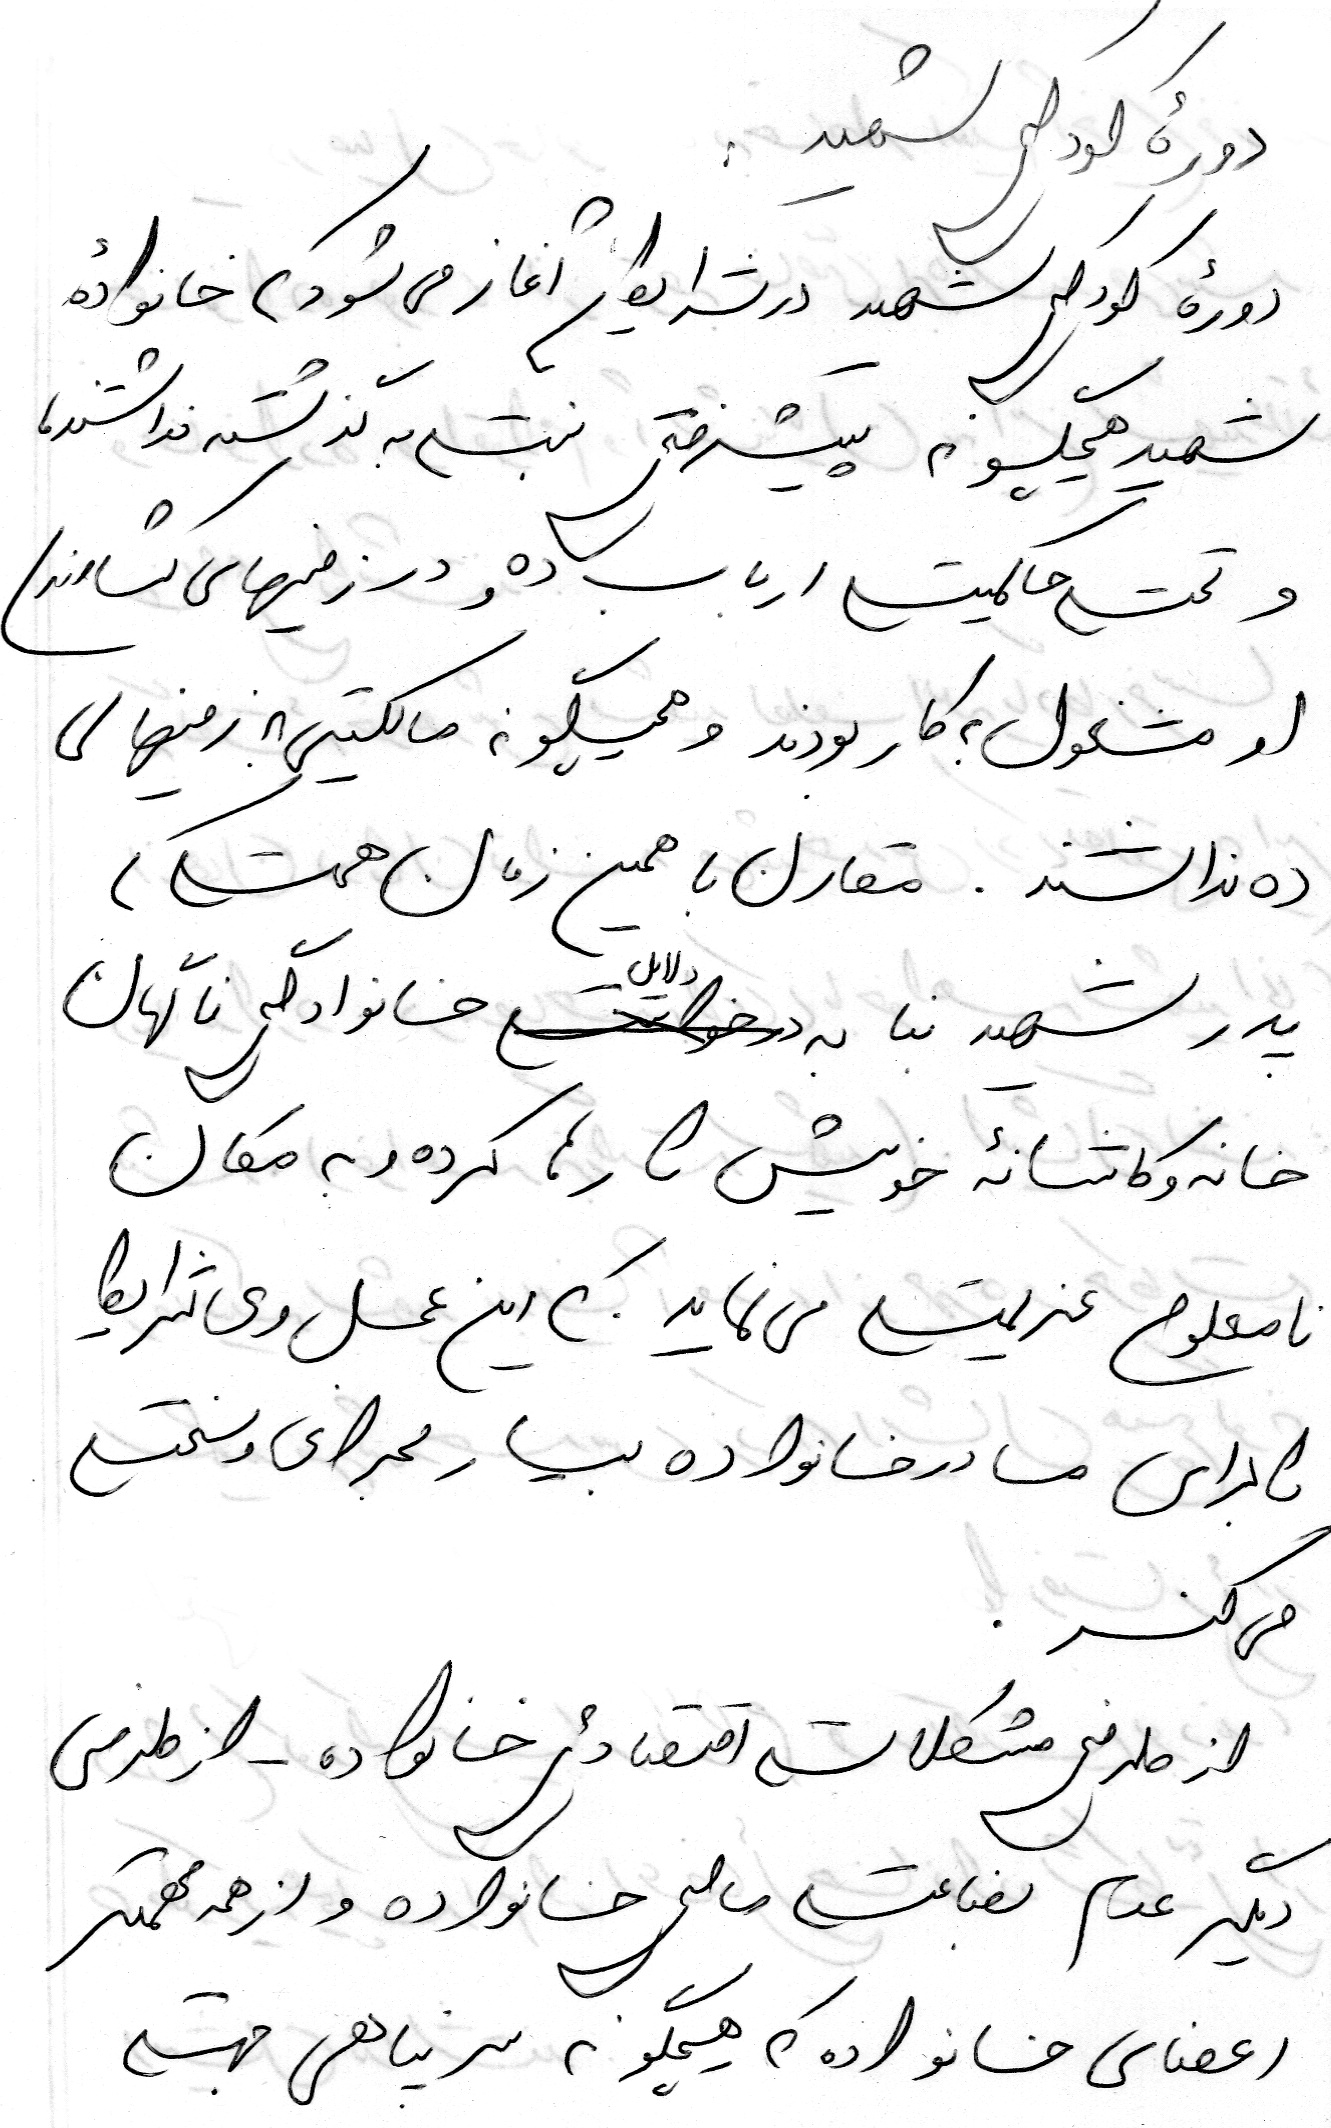 دورهٔ کودکی شهید :
دورهٔ کودکی شهید در شرایطی آغاز می شود که خانوادهٔ
شهید هیچگونه پیشرفتی نسبت به گذشته نداشتند
و تحت حاکمیت ارباب ده و در زمینهای کشاورزی
او مشغول به کار بودند و هیچگونه مالکیتی به زمینهای
ده نداشتند . متقارن با همین زمان هست که
پدر شهید بنا به درخواست دلایل خانوادگی ناگهان
خانه و کاشانهٔ خویش را رها کرده و به مکان
نامعلوم عزیمت می نماید . که این عمل وی شرایط
را برای مادر خانواده بسیار بحرانی و سخت
می کند .
از طرفی مشکلات اقتصادی خانواده - از طرفی
دیگر عدم بضاعت مالی خانواده و از همه مهمتر
اعضای خانواده که هیچگونه سرپناهی جهت